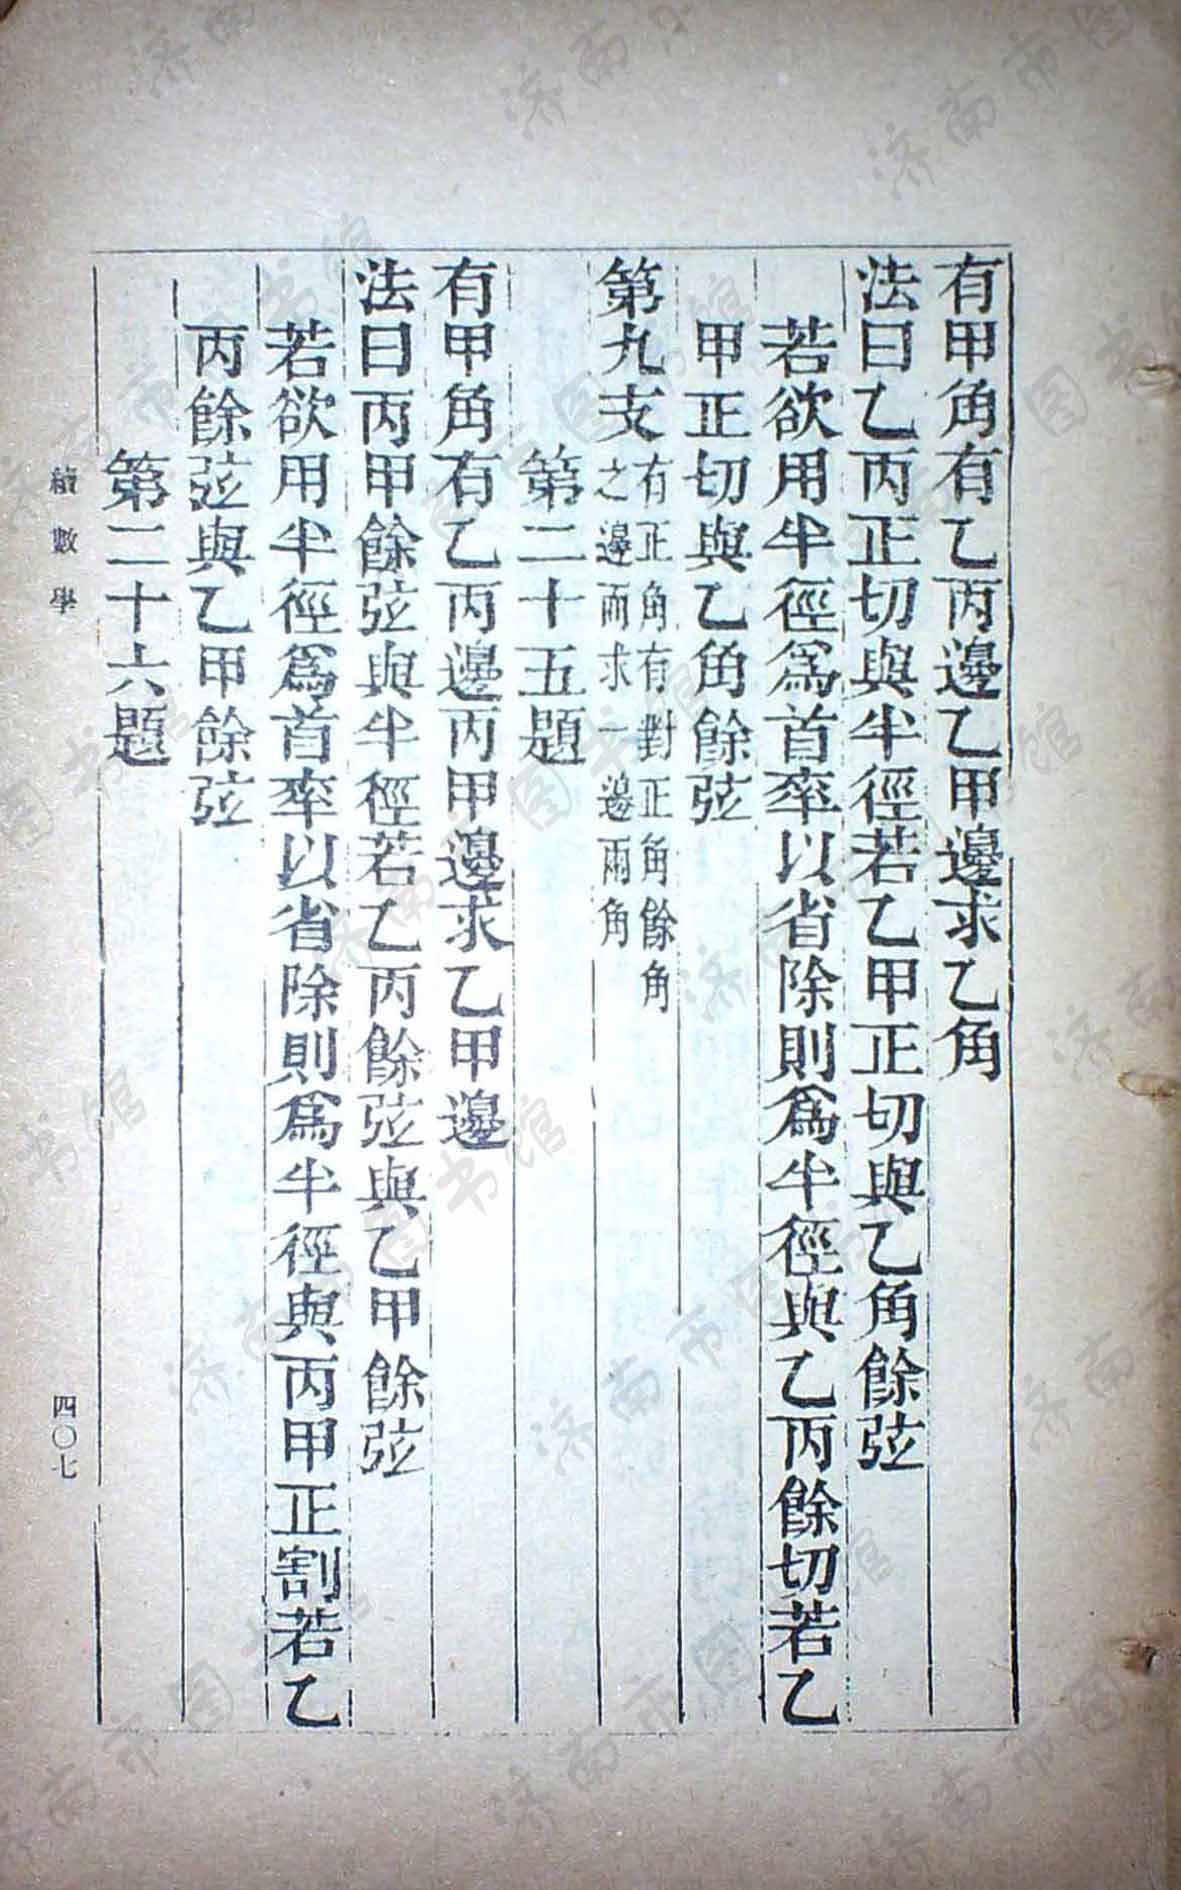 有甲角有乙丙邊乙甲邊求乙角
法曰乙丙正切與半徑若乙甲正切與乙角餘弦
若欲用半徑爲首率以省除則爲半徑與乙丙餘切若乙
甲正切與乙角餘弦
第九支有正角有對正角餘角
之邊而求一邊兩角
第二十五題
有甲角有乙丙邊丙甲邊求乙甲邊
法曰丙甲餘弦與半徑若乙丙餘弦與乙甲餘弦
若欲用半徑爲首率以省除則爲半徑與丙甲正割若乙
丙餘弦與乙甲餘弦
第二十六題
續數學
四〇七
济南市图书馆